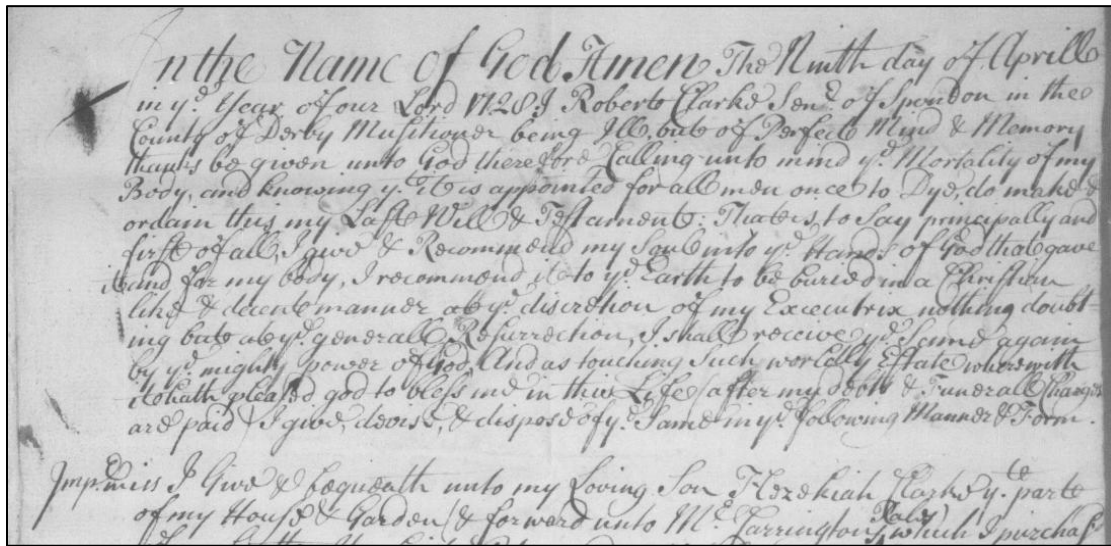 In the Name of God Amen The Ninth day of Aprill
in ye Year of our Lord 1728 I Robert Clarke Senr of Spondon in the
County of Derby being Ill, but of Perfect Mind & Memory
thanks be given unto God therefore Calling unto mind ye Mortality of my
Body, and knowing yt it is appointed for all men once to Dye, do make &
ordain this my Last Will & Testament: That is, to Say principally and
first of all, I give & Recommend my Soul into ye Hands of God that gave
it and for my body, I recommend it to ye Earth to be buried in a Christian
like & decent manner at ye discretion of my Executrix nothing doubt=
ing but at ye generall Resurrection, I shall receive ye Same again
by ye mighty power of God. And as touching Such worldly Estate wherewith
it hath pleased god to bless me in this Life (after my debts & Funerall Charges
are paid) I give, devise, & dispose of ye Same in ye following Manner & Form.
I Give & bequeath unto my Loving Son Hezekiah Clarke yt parte
of my House & Garden & forward unto Mr Carrington which I purchas